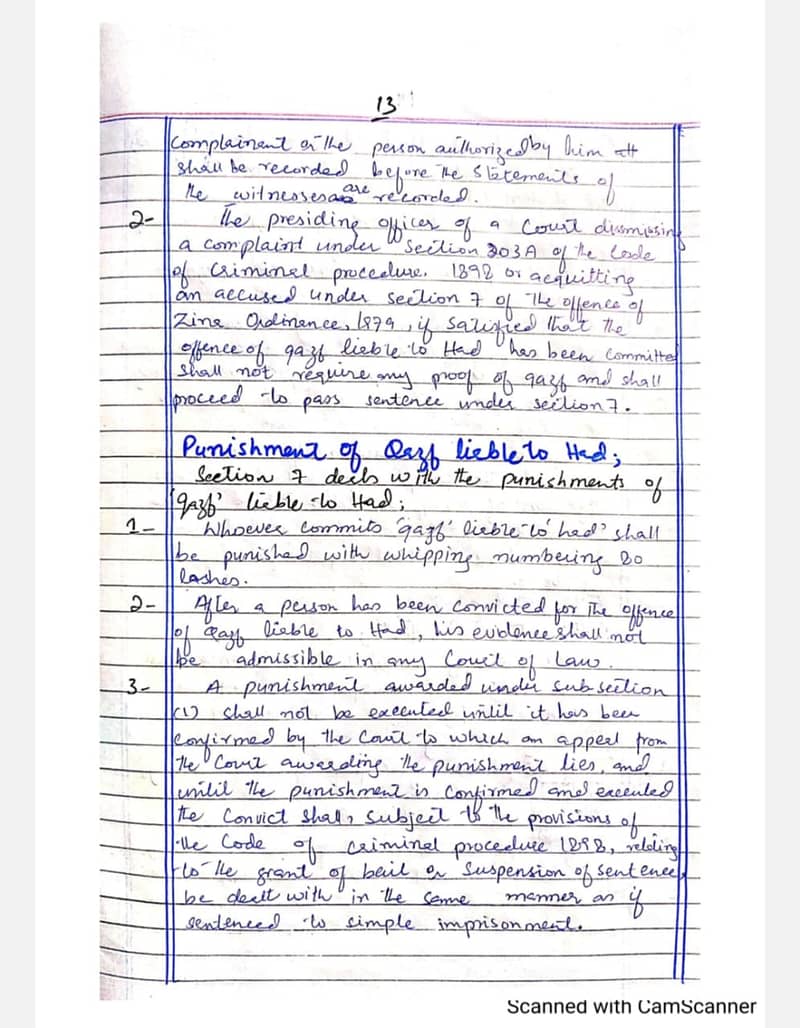 13
Complainant or the person authorized by him
shall be recorded before the statements of
the witnesses are recorded.
2- The presiding officer of a Court dismissing
a complaint under Section 203A of the Code
of Criminal procedure. 1898 or acquitting
an accused under section 7 of the offence of
Zina Ordinence, 1979, if satisfied that the
offence of qazf lieble to Had has been committed
shall not require any proof of qazf and shall
proceed to pass sentence under section 7.
Punishment of Qazf lieble to Had;
Section 7 deels with the punishments of
'qazf' lieble to Had;
1- Whoever commits 'qazf' lieble to 'had' shall
be punished with whipping numbering 80
lashes.
2- After a person has been convicted for the offence
of Qazf lieble to Had, his evidence shall not
be admissible in any Court of Law.
3- A punishment awarded under sub section
(1) shall not be executed until it has been
confirmed by the Court to which an appeal from
the Court awarding the punishment lies, and
until the punishment is confirmed and executed
the Convict shall, subject to the provisions of
the Code of criminal procedure 1898, relating
to the grant of bail or suspension of sentence,
be dealt with in the same manner as if
sentenced to simple imprisonment.
Scanned with CamScanner